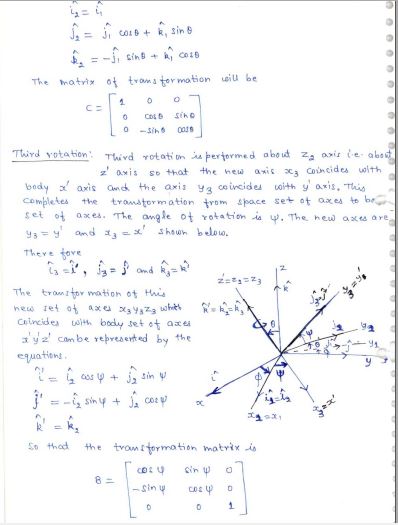 î₂ = î₁
ĵ₂ = ĵ₁ cosθ + k̂₁ sinθ
k̂₂ = -ĵ₁ sinθ + k̂₁ cosθ
The matrix of transformation will be
C = [ 1 0 0
0 cosθ sinθ
0 -sinθ cosθ ]
Third rotation: Third rotation is performed about z₂ axis i.e. about
z' axis so that the new axis x₃ coincides with
body x' axis and the axis y₃ coincides with y' axis. This
completes the transformation from space set of axes to be
set of axes. The angle of rotation is ψ. The new axes are
y₃ = y' and x₃ = x' shown below.
There fore
î₃ = î', ĵ₃ = ĵ' and k̂₃ = k̂'
The transformation of this
new set of axes x₃y₃z₃ which
coincides with body set of axes
x'y'z' can be represented by the
equations.
î' = î₂ cosψ + ĵ₂ sinψ
ĵ' = -î₂ sinψ + ĵ₂ cosψ
k̂' = k̂₂
z
z' = z₂ = z₃
k̂
k̂' = k̂₂ = k̂₃
y₃ = y'
ĵ₃ = ĵ'
θ
ψ
ĵ₂
y₂
θ
y₁
φ
y
î
φ
ψ
x
î₂ = î₁
x₂ = x₁
x₃ = x'
So that the transformation matrix is
B = [ cosψ sinψ 0
-sinψ cosψ 0
0 0 1 ]